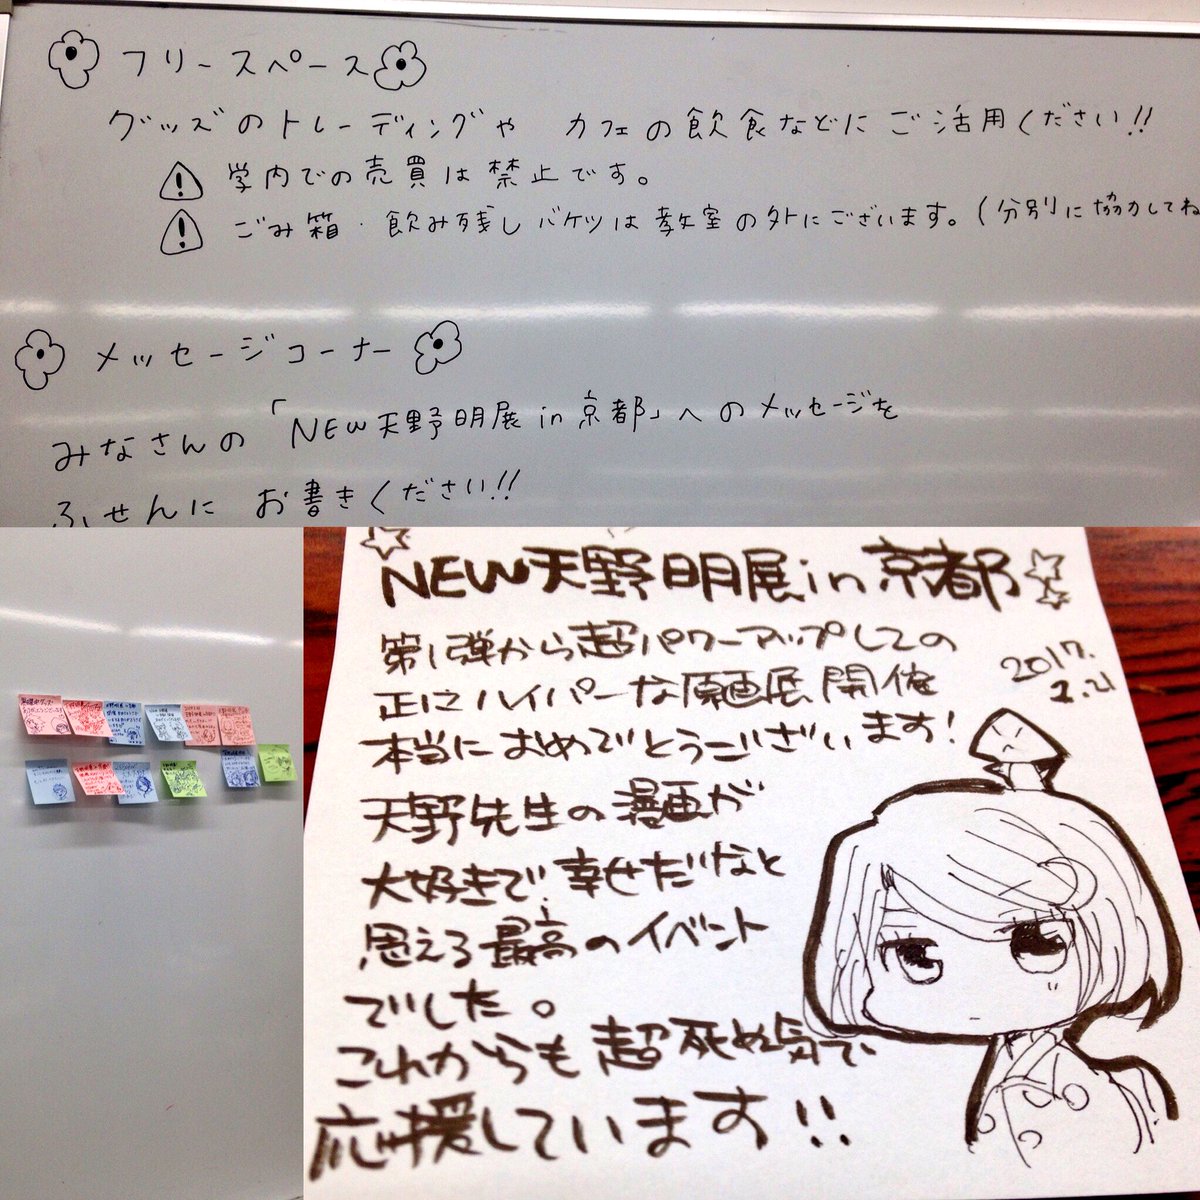 フリースペース
グッズのトレーディングや カフェの飲食などにご活用ください!!
学内での売買は禁止です。
ごみ箱・飲み残しバケツは教室の外にございます。(分別に協力してね
メッセージコーナー
みなさんの「NEW天野明展in京都」へのメッセージを
ふせんに お書きください!!
NEW天野明展in京都
2017.
2.21
第1弾から超パワーアップしての
正にハイパーな原画展開催
本当におめでとうございます!
天野先生の漫画が
大好きで幸せだなと
思える最高のイベント
でした。
これからも超死ぬ気で
応援しています!!